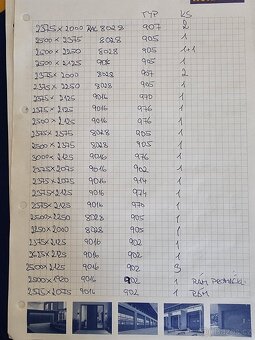 TYP KS
2375 x 2000 RAL 8028 907 2
2500 x 2375 8028 905 1
2500 x 2250 8028 905 1+1
2500 x 2125 9016 1
2375 x 2000 8028 907 2
2575 x 2250 8028 905 1
2575 x 2125 9016 970 1
2575 x 2125 9016 976 1
2500 x 2125 9016 976 1
2575 x 2575 8028 905 1
2575 x 2250 8028 905 1
3000 x 2125 9016 976 1
2375 x 2075 9016 902 1
2375 x 2075 9016 914 1
2575 x 2125 9016 974 1
2575 x 2125 9016 970 1
2500 x 2250 8028 905 1
2250 x 2000 8028 905 1
2375 x 2125 9016 902 1
2575 x 2125 9016 902 1
2500 x 2125 9016 902 3
2500 x 1920 9016 902 1 RÁM
2575 x 2075 9016 902 1 RÁM